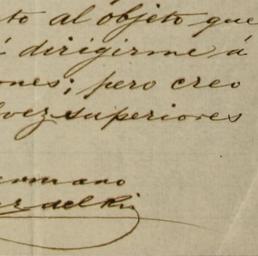 to al objeto que
á dirigirme á
ones; pero creo
vez superiores
ermano